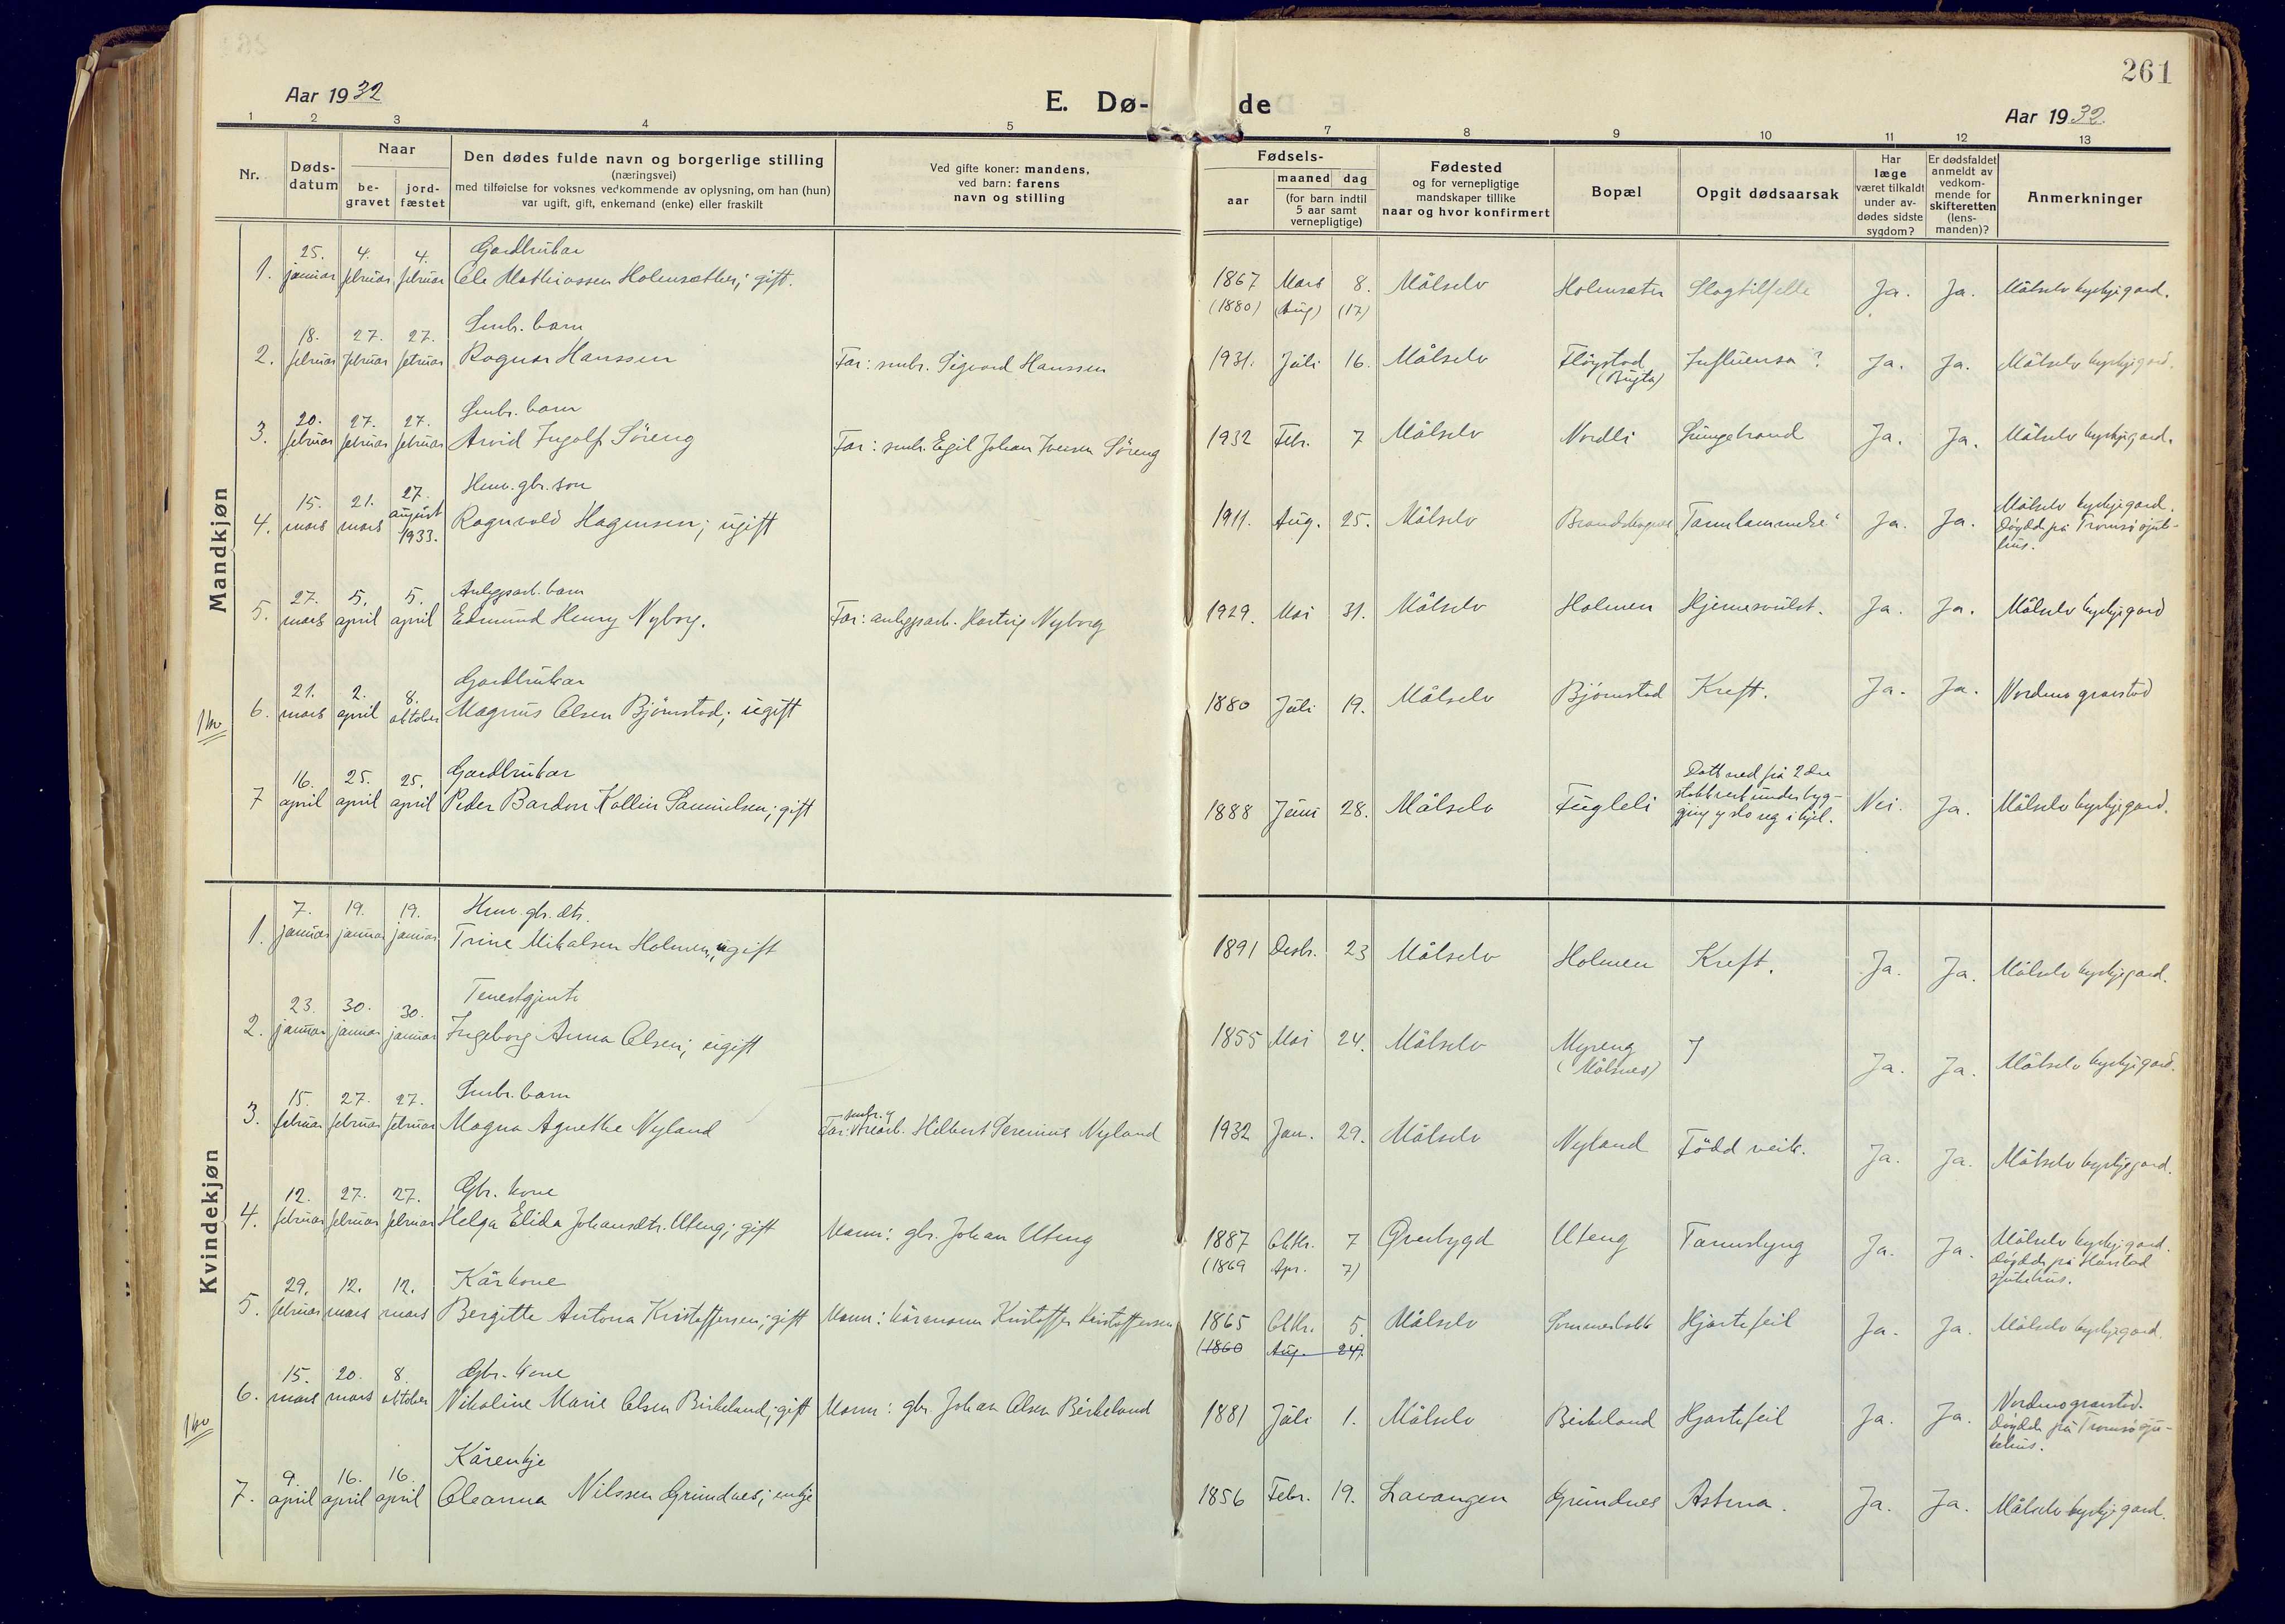 261
Aar 1932
E. Dø-de
Aar 1932.
1 2 3 4 5 7 8 9 10 11 12 13
Nr.
Døds-
datum
Naar
be-
gravet
jord-
fæstet
Den dødes fulde navn og borgerlige stilling
(næringsvei)
med tilføielse for voksnes vedkommende av oplysning, om han (hun)
var ugift, gift, enkemand (enke) eller fraskilt
Ved gifte koner: mandens,
ved barn: farens
navn og stilling
Fødsels-
aar
maaned dag
(for barn indtil
5 aar samt
vernepligtige)
Fødested
og for vernepligtige
mandskaper tillike
naar og hvor konfirmert
Bopæl
Opgit dødsaarsak
Har
læge
været tilkaldt
under av-
dødes sidste
sygdom?
Er dødsfaldet
anmeldt av
vedkom-
mende for
skifteretten
(lens-
manden)?
Anmerkninger
Mandkjøn
25. 4. 4. Gardbrukar
1. januar februar februar Ole Mathiassen Holmsæther; gift. 1867 Mars 8. Målselv Holmsæter Slagtilfelle Ja. Ja. Målselv kyrkjegard.
(1880) (Aug) (17)
18. 27. 27. Smbr. barn
2. februar februar februar Ragnar Hanssen Far: smbr. Sigvard Hanssen 1931. Juli 16. Målselv Fløgstad Influensa? Ja. Ja. Målselv kyrkjegard.
(Bugta)
20. 27. 27. Smbr. barn
3. februar februar februar Arvid Ingolf Søreng Far: smbr. Egil Johan Iversen Søreng 1932 Febr. 7 Målselv Nordli Lungebrand Ja. Ja. Målselv kyrkjegard.
15. 21. 27. gbr. son
4. mars mars august 1933. Ragnvald Hagensen; ugift 1911. Aug. 25. Målselv "Tarmlammelse" Ja. Ja. Målselv kyrkjegard.
Døydde på Tromsø sjuke-
hus.
27. 5. 5. Anleggsarb. barn
5. mars april april Edmund Henry Nyborg. Far: anleggsarb. Hartvig Nyborg 1929. Mai 31. Målselv Holmen Hjernesvulst. Ja. Ja. Målselv kyrkjegard
21. 2. 8. Gardbrukar
6. mars april oktober Magnus Olsen Bjørnstad; ugift 1880 Juli 19. Målselv Bjørnstad Kreft. Ja. Ja. Nordmo gravstad
16. 25. 25. Gardbrukar
7 april april april Peder Bardon Kollin Samuelsen; gift 1888 Juni 28. Målselv Fugleli Datt ned frå 2dre
stokkverk under byg-
ging og slo seg i hjel. Nei. Ja. Målselv kyrkjegard.
Kvindekjøn
7. 19. 19. gbr. dtr.
1. januar januar januar Trine Mikalsen Holmen; ugift 1891 Desbr. 23 Målselv Holmen Kreft. Ja. Ja. Målselv kyrkjegard.
23. 30. 30. Tenestgjente
2. januar januar januar Ingeborg Anna Olsen; ugift 1855 Mai 24. Målselv Myreng ? Ja. Ja. Målselv kyrkjegard.
(Målsnes)
15. 27. 27. Smbr. barn
3. februar februar februar Magna Agnethe Nyland Far: smbr. og trearb. Hilbert Serenius Nyland 1932 Jan. 29. Målselv Nyland Född veik. Ja. Ja. Målselv kyrkjegard.
12. 27. 27. Gbr. kone
4. februar februar februar Helga Elida Johansdtr. Uteng; gift Mann: gbr. Johan Uteng 1887 Oktbr. 7 Øverbygd Uteng Tarmslyng Ja. Ja. Målselv kyrkjegard.
(1869 Apr. 7) Døydde på Harstad
sjukehus.
29. 12. 12. Kårkone
5. februar mars mars Bergitte Antona Kristoffersen; gift Mann: kårmann Kristoffer Kristoffersen 1865 Oktbr. 5. Målselv Sommerbakk Hjartefeil Ja. Ja. Målselv kyrkjegard.
(1860 Aug. 24).
15. 20. 8. Gbr. kone
6. mars mars oktober Nikoline Marie Olsen Birkeland; gift Mann: gbr. Johan Olsen Birkeland 1881 Juli 1. Målselv Birkeland Hjartefeil Ja. Ja. Nordmo gravstad.
Døydde på Tromsø sju-
kehus.
9. 16. 16. Kårenkje
7. april april april Oleanna Nilssen Grundnes; enkje 1856 Febr. 19. Lavangen Grundnes Astma. Ja. Ja. Målselv kyrkjegard.